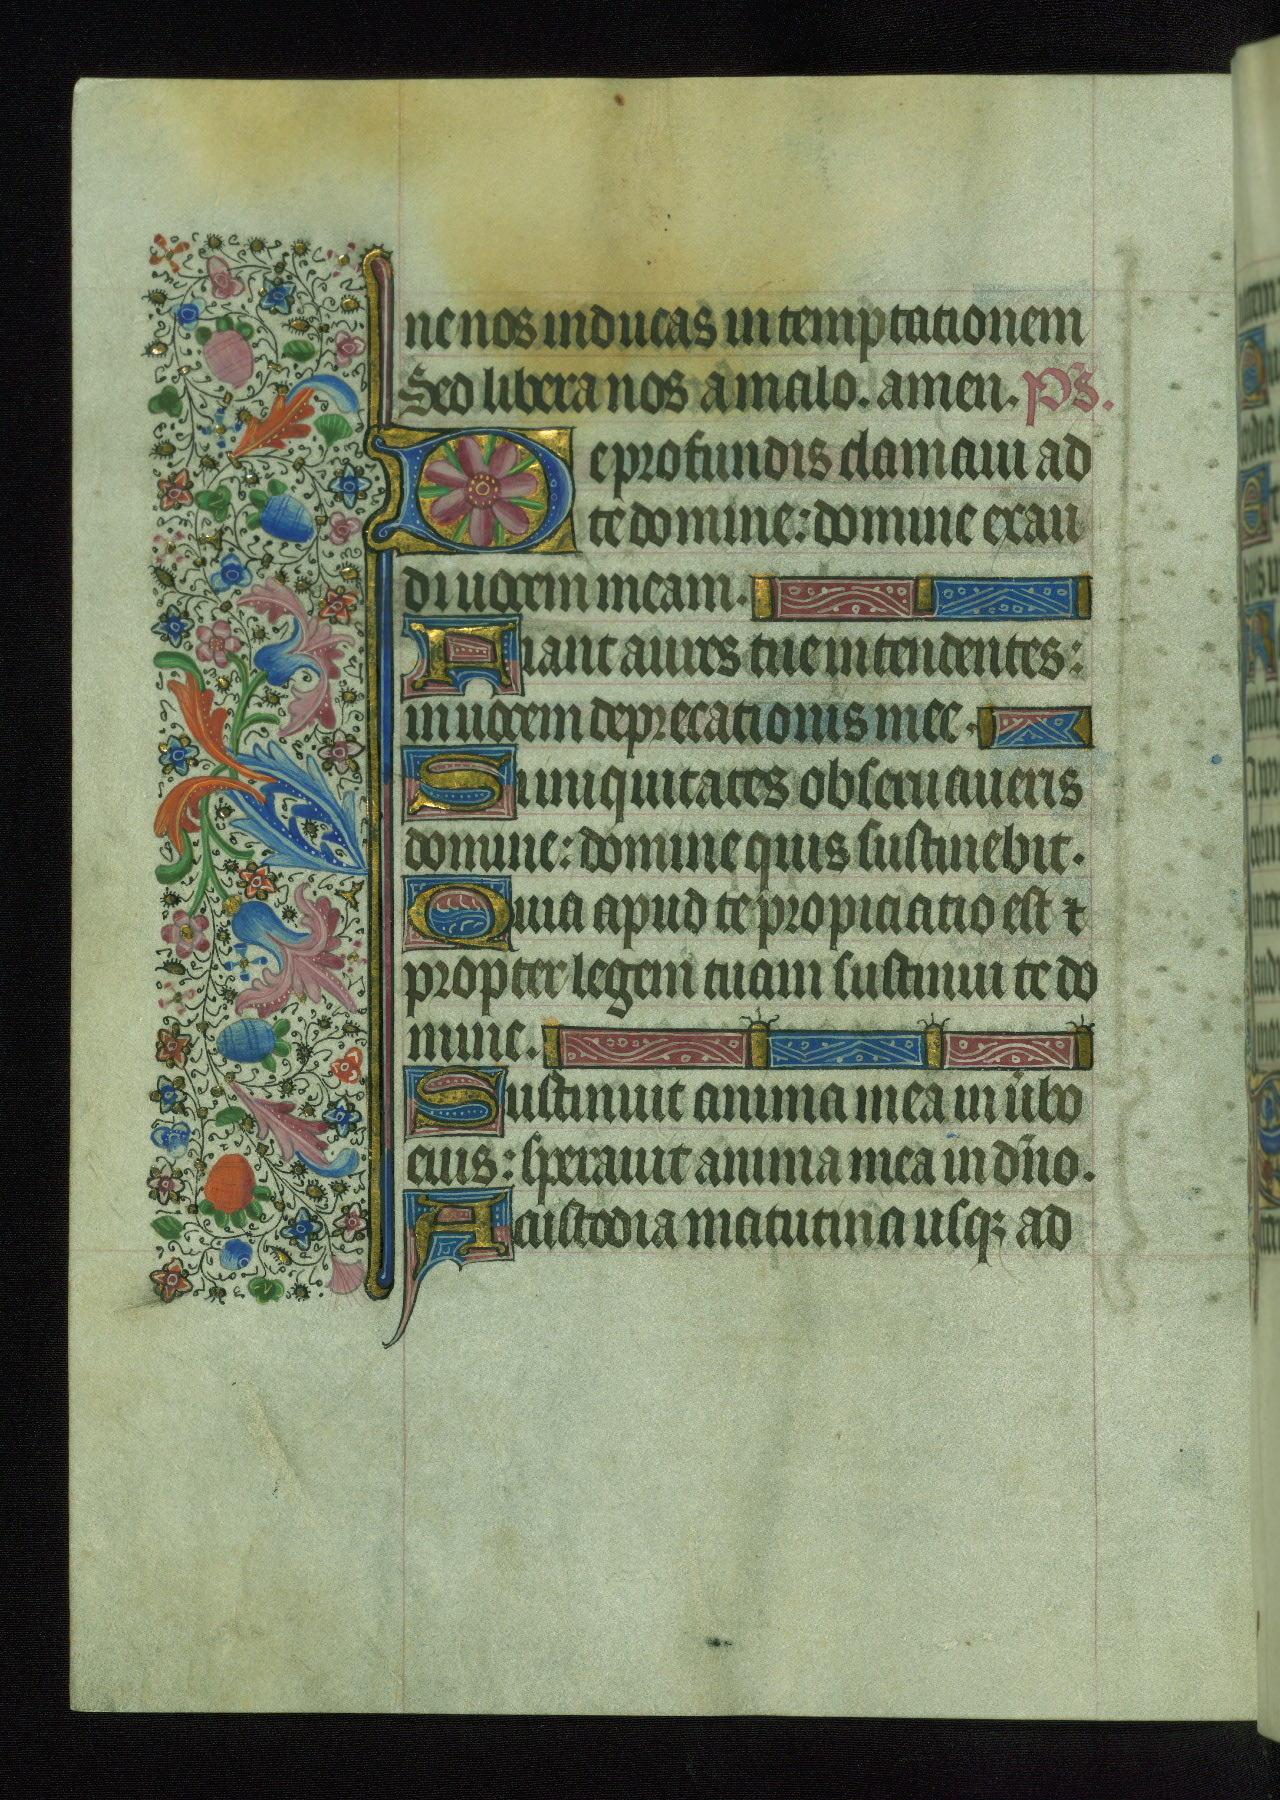 ne nos inducas in temptationem
Sed libera nos a malo. amen. ps̄.
De profundis clamaui ad
te domine: domine exau
di uocem meam.
Fiant aures tue intendentes:
in uocem deprecationis mee.
Si iniquitates obseruaueris
domine: domine quis sustinebit.
Quia apud te propiciatio est ⁊
propter legem tuam sustinui te do
mine.
Sustinuit anima mea in ūbo
eius: sperauit anima mea in dn̄o.
A custodia matutina usqꝫ ad